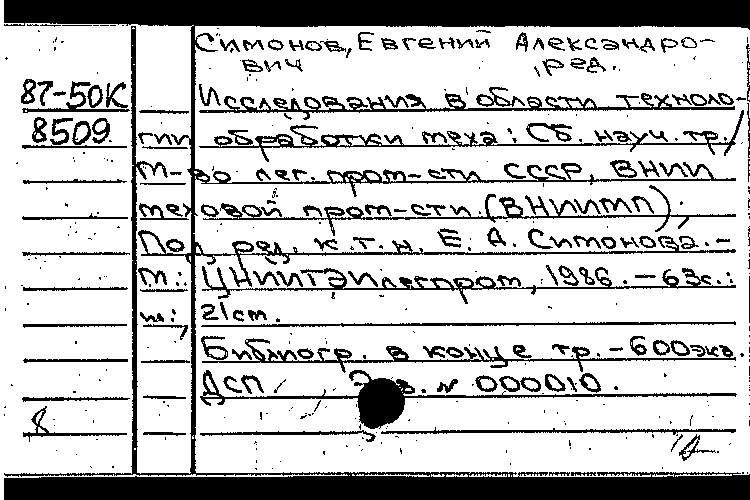 Симонов, Евгений Александро-
вич, ред.
87-50К Исследования в области техноло-
8509 гии обработки меха: Сб. науч. тр./
М-во лег. пром-сти СССР, ВНИИ
меховой пром-сти (ВНИИМП);
Под ред. к.т.н. Е. А. Симонова. -
М.: ЦНИИТЭИлегпром, 1986. - 63с.:
ил.; 21см.
Библиогр. в конце тр. - 600экз.
ДСП. Экз. № 000010.
8